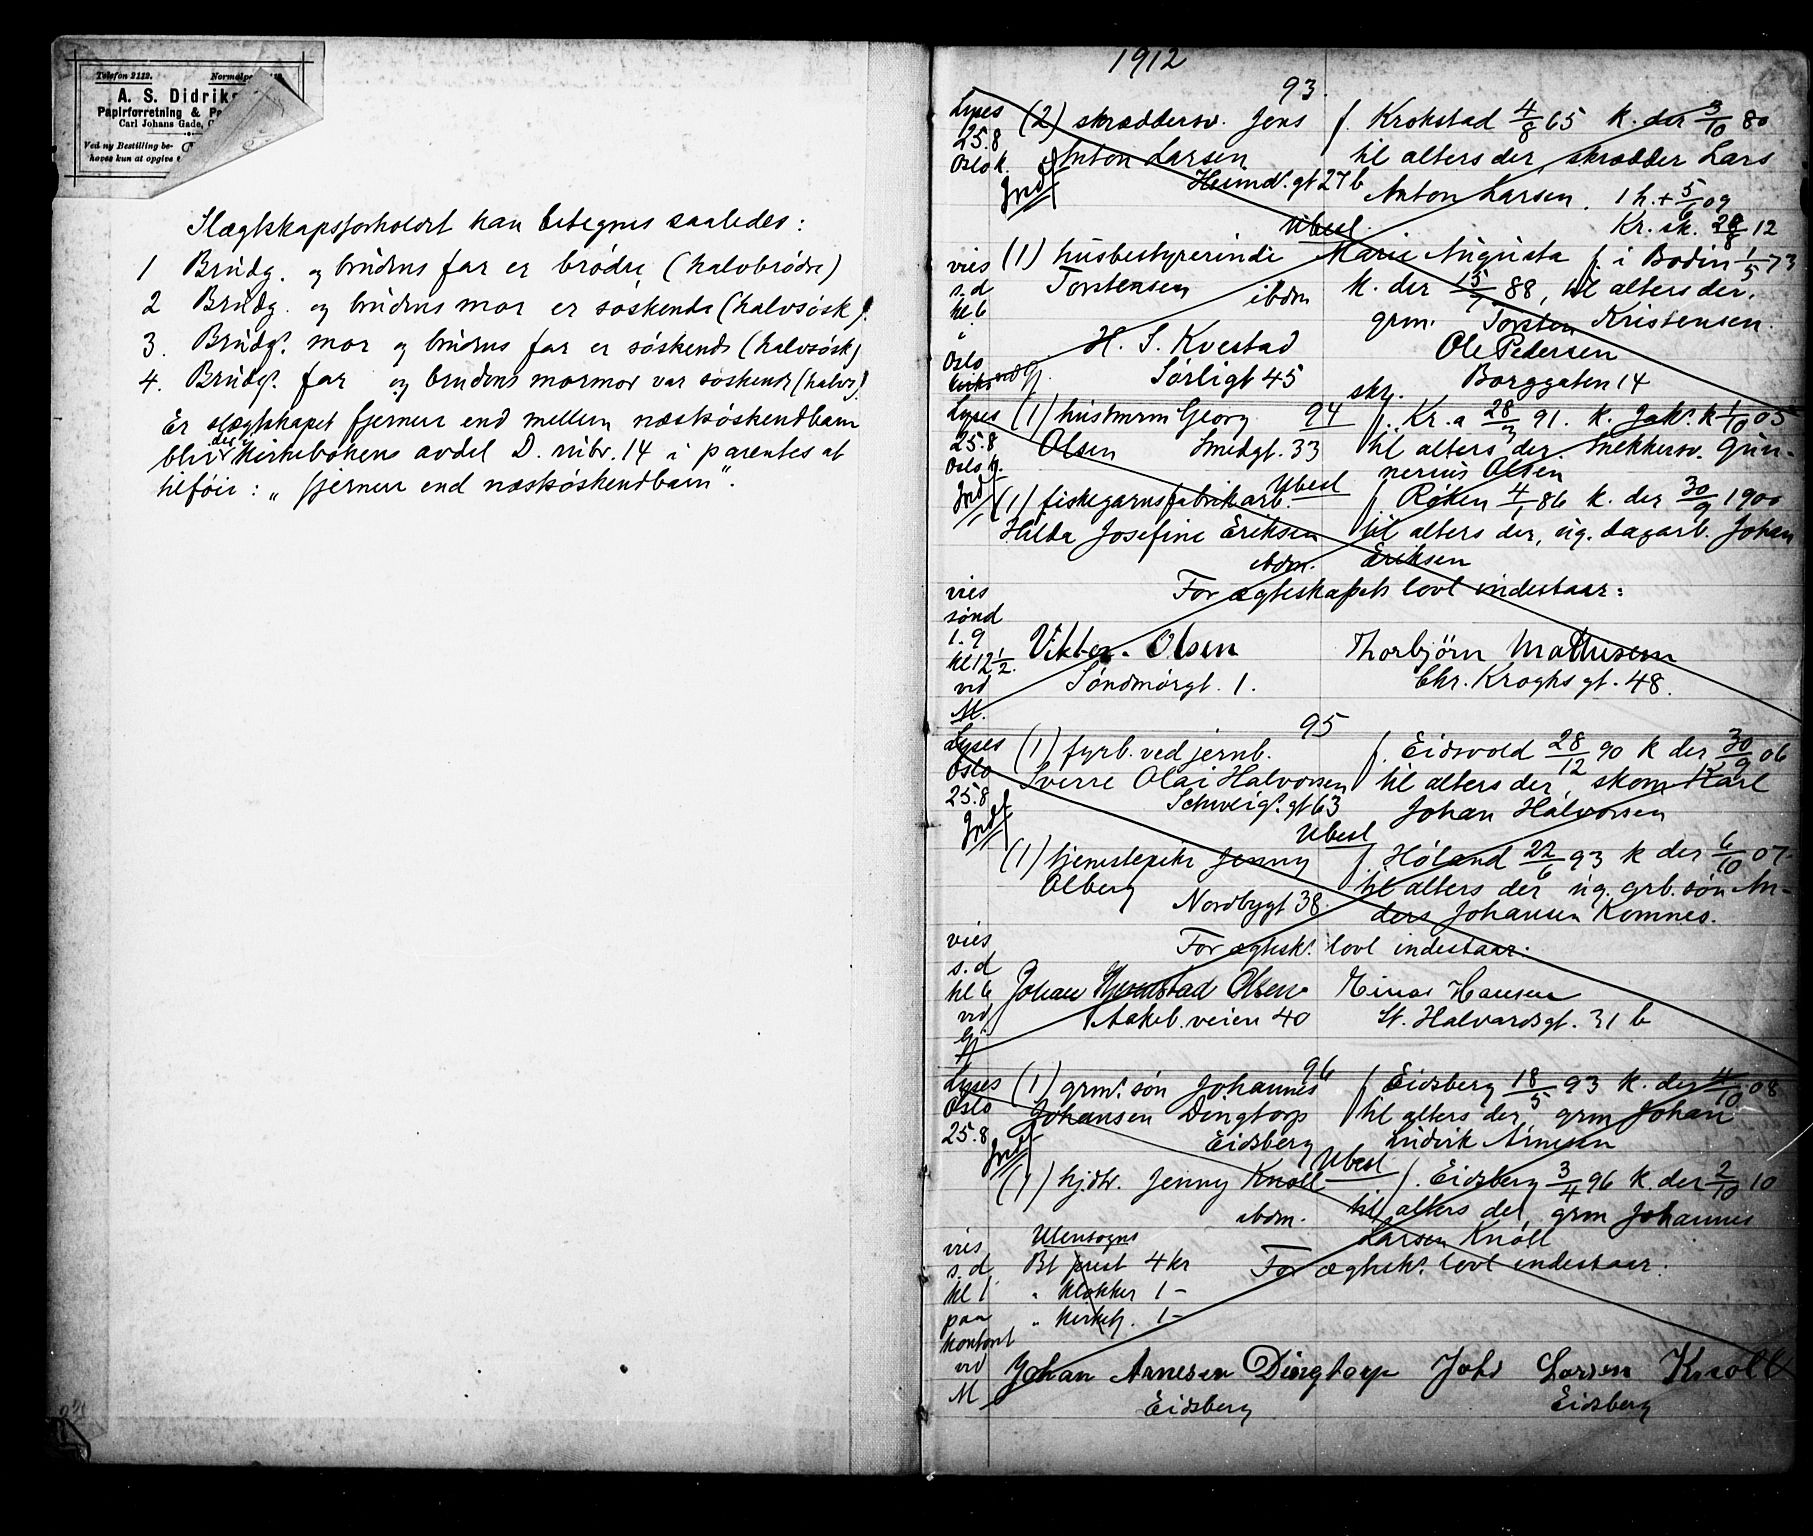 Telefon 2112. Normalpa
A. S. Didriks
Papirforretning & P
Carl Johans Gade,
Ved ny Bestilling be-
høves kun at opgive
Slægtskapsforholdet kan betegnes saaledes:
1 Brudg. og brudens far er brødre (halvbrødre)
2 Brudg. og brudens mor er søskende (halvsøsk).
3. Brudgs. mor og brudens far er søskende (halvsøsk)
4. Brudgs. far og brudens mormor var søskende (halvs).
Er slægtskapet fjernere end mellem næstsøskendbarn
blir det i kirkebokens avdel D. rubr. 14 i parentes at
tilføie: "fjernere end næstsøskendbarn".
1912
93.
Lyses (2) skræddersv. Jens f. Krokstad 4/8 65 k. der 3/10 80
25.8 Anton Larsen til alters der, skrædder Lars
Oslo k. Heimds. gt 27 b Anton Larsen. 1 h. + 5/6 09
Indf Ubesl. Kr. sk. 28/8 12
vies (1) husbestyrerinde Marie Augusta f. i Bodin 1/5 73
s.d Torstensen ibdm k. der 15/9 88, til alters der.
kl. 6 grm. Torsten Kristensen.
H. S. Kvestad Ole Pedersen
Oslo Sørligt 45 Borggaten 14
kirke ved Gj.
skr.
Lyses (1) husmrm Georg 94 f. Kr.a 28/3 91. k. Jaks. k 1/10 05
25.8 Olsen Smedgt. 33 til alters der. Snekkersv. Gun-
Oslo k. nerius Olsen
Indf (1) fiskegarnsfabrikarb. Ubesl f. Røken 4/1 86 k. der 30/9 1900
Hilda Josefine Eriksen til alters der, ug. dagarb. Johan
ibdm. Eriksen
vies For ægteskapets lovl indestaar:
sønd
1.9 Viktor Olsen Thorbjörn Mathisen
kl 12 1/2. Søndmørgt. 1. Chr. Kroghs gt. 48.
vid
M.
95
Lyses (1) fyrb. ved jernb. f. Eidsvold 28/12 90 k der 30/9 06
Oslo Sverre Olai Halvorsen til alters der, skom Karl
25.8 Schweigs. gt 63 Johan Halvorsen
Indf Ubesl
(1) tjenestepike Jenny f. Høland 22/6 93 k der 6/10 07
Olberg Nordbygt 38. til alters der ug. grb. søn An-
ders Johansen Komnes.
vies For ægtesk. lovl indestaar.
s.d
kl 6 Johan Olsen Einar Hansen
vid Aakeb. veien 40 St. Halvardsgt. 31 b
Gj
96
Lyses (1) grms. søn Johannes f Eidsberg 18/5 93 k. der 4/10 08
Oslo Johansen Dingtorp til alters der, grm Johan
25.8 Eidsberg Ludvik Arnesen
Indf Ubesl
(1) hj.dtr. Jenny Knoll f. Eidsberg 3/4 96 k. der 2/10 10
ibdm. til alters der, grm Johannes
Utensogns Larsen Knoll
vies Bt prest 4 kr For ægtesk. lovl indestaar.
s.d
kl 1 " klokker 1 –
paa " kirket. 1 –
kontoret
vid Johan Arnesen Dingtorp Johs Larsen Knoll
M Eidsberg Eidsberg